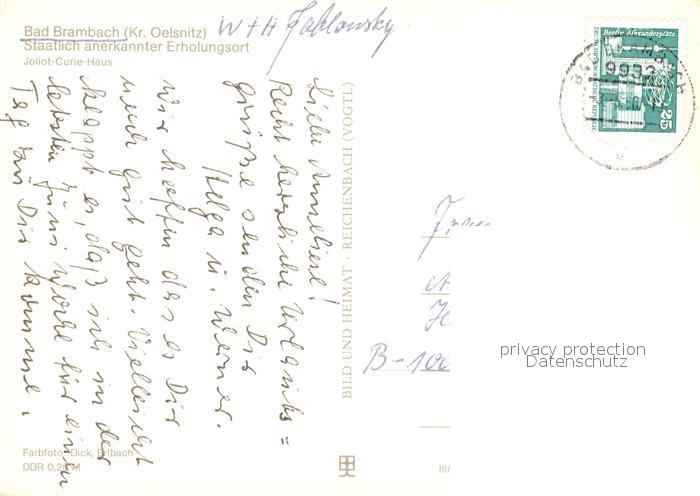 Bad Brambach (Kr. Oelsnitz)
Staatlich anerkannter Erholungsort
Joliot-Curie-Haus
W + H Jablonsky
Liebe Anneliese!
Recht herzliche Urlaubs=
grüße senden Dir
Helga u. Werner.
Wir hoffen das es Dir
noch gut geht. Vielleicht
klappt es, daß ich in der
letzten Juni Woche für einen
Tag zu Dir komme.
BILD UND HEIMAT · REICHENBACH (VOGTL)
Berlin, Alexanderplatz
25
9932
B-100
privacy protection
Datenschutz
Farbfoto: Dick, Erlbach
DDR 0,20 M
III/